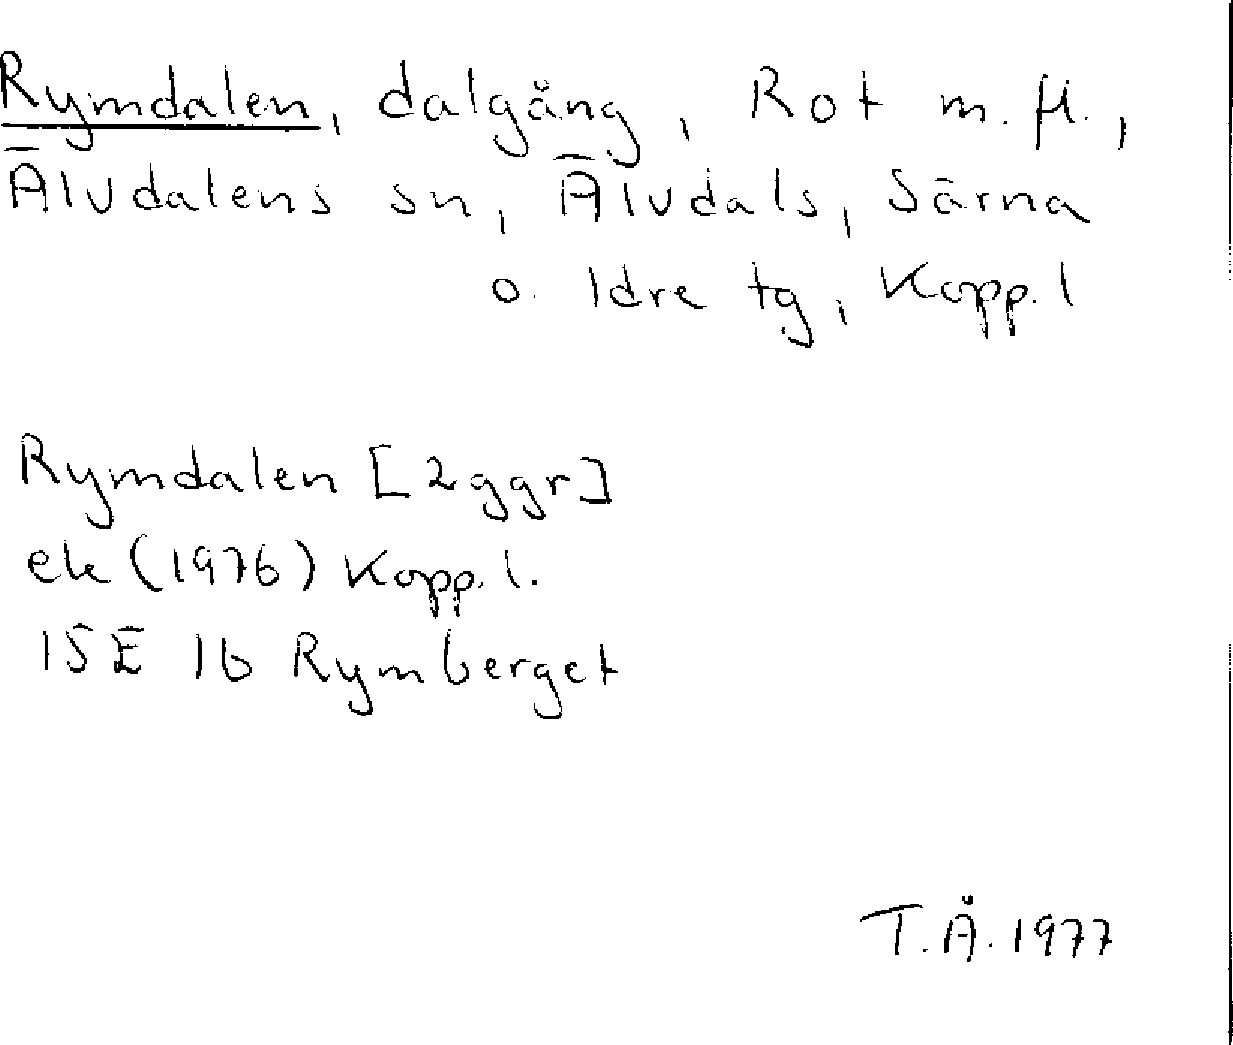 Rymdalen, dalgång, Rot m. fl.,
Älvdalens sn, Älvdals, Särna
o. Idre tg, Kopp. l
Rymdalen [2 ggr]
ek (1976) Kopp. l.
15E 1b Rymberget
T.Å. 1977